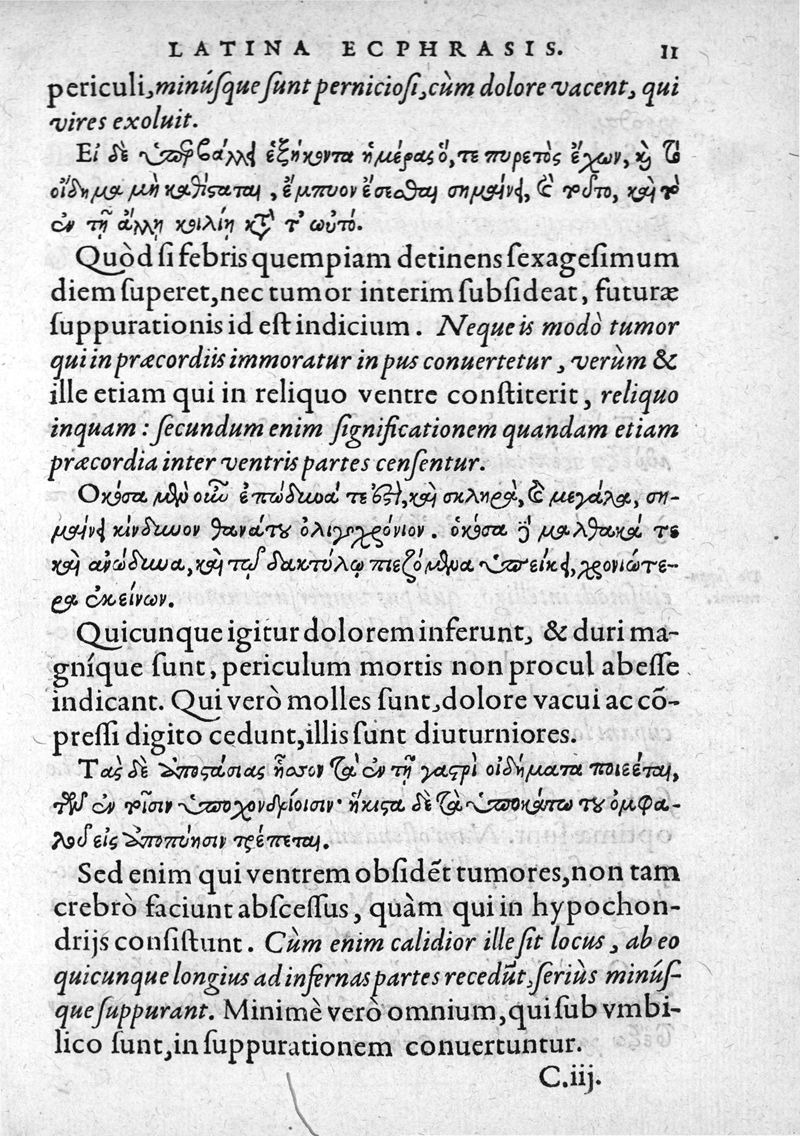 LATINA ECPHRASIS. 11
periculi, minúsque sunt perniciosi, cùm dolore vacent, qui
vires exoluit.
Εἰ δὲ ὑπερβάλλῃ ἑξήκοντα ἡμέρας ὅ, τε πυρετὸς ἔχων, καὶ τὸ
οἴδημα μὴ καθίσταται, ἔμπυον ἔσεσθαι σημαίνει, καὶ τοῦτο, καὶ τὸ
ἐν τῇ ἄλλῃ κοιλίῃ κατὰ τ' ωὐτό.
Quòd si febris quempiam detinens sexagesimum
diem superet, nec tumor interim subsideat, futuræ
suppurationis id est indicium. Neque is modò tumor
qui in præcordiis immoratur in pus conuertetur, verùm &
ille etiam qui in reliquo ventre constiterit, reliquo
inquam: secundum enim significationem quandam etiam
præcordia inter ventris partes censentur.
Οκόσα μὲν οὖν ἐπώδυνά τε ἐστὶ, καὶ σκληρὰ, καὶ μεγάλα, ση-
μαίνει κίνδυνον θανάτου ὀλιγοχρόνιον. ὁκόσα δὲ μαλθακά τε
καὶ ἀνώδυνα, καὶ τῷ δακτύλῳ πιεζόμενα ὑπείκει, χρονιώτε-
ρα ἐκείνων.
Quicunque igitur dolorem inferunt, & duri ma-
gníque sunt, periculum mortis non procul abesse
indicant. Qui verò molles sunt, dolore vacui ac cō-
pressi digito cedunt, illis sunt diuturniores.
Τὰς δὲ ἀποστάσιας ἧσσον τὰ ἐν τῇ γαστρὶ οἰδήματα ποιέεται,
τῶν ἐν τοῖσιν ὑποχονδρίοισιν· ἥκιστα δὲ τὰ ὑποκάτω τοῦ ὀμφα-
λοῦ εἰς ἀποπύησιν τρέπεται.
Sed enim qui ventrem obsidēt tumores, non tam
crebrò faciunt abscessus, quàm qui in hypochon-
drijs consistunt. Cùm enim calidior ille sit locus, ab eo
quicunque longius ad infernas partes recedūt, seriùs minús-
que suppurant. Minimè verò omnium, qui sub vmbi-
lico sunt, in suppurationem conuertuntur.
C.iij.